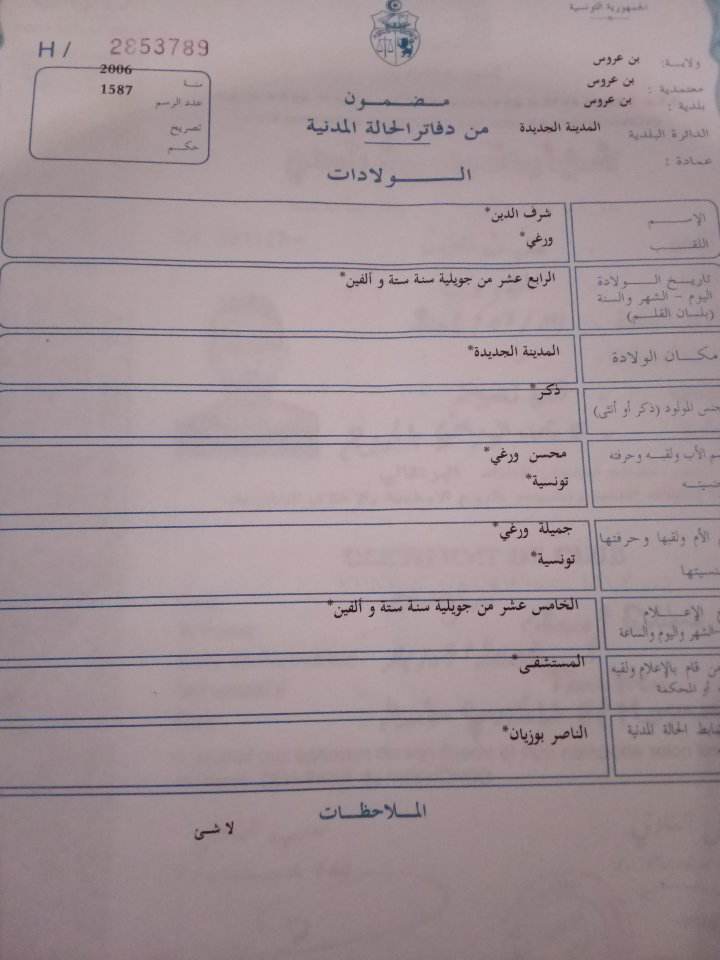 الجمهورية التونسية
H / 2853789
ولاية: بن عروس
معتمدية: بن عروس
بلدية: بن عروس
الدائرة البلدية المدينة الجديدة
عمادة:
سنة 2006
عدد الرسم 1587
تصريح
حكم
مضمون
من دفاتر الحالة المدنية
الولادات
الإسم شرف الدين*
اللقب ورغي*
تاريخ الولادة الرابع عشر من جويلية سنة ستة و ألفين*
اليوم - الشهر والسنة
(بلسان القلم)
مكان الولادة المدينة الجديدة*
جنس المولود (ذكر أو أنثى) ذكر*
إسم الأب ولقبه وحرفته محسن ورغي*
تونسية*
الأم ولقبها وحرفتها جميلة ورغي*
تونسية*
الإعلام الخامس عشر من جويلية سنة ستة و ألفين*
الشهر واليوم والساعة
من قام بالإعلام ولقبه المستشفى*
أو المحكمة
ضابط الحالة المدنية الناصر بوزيان*
الملاحظات
لا شئ